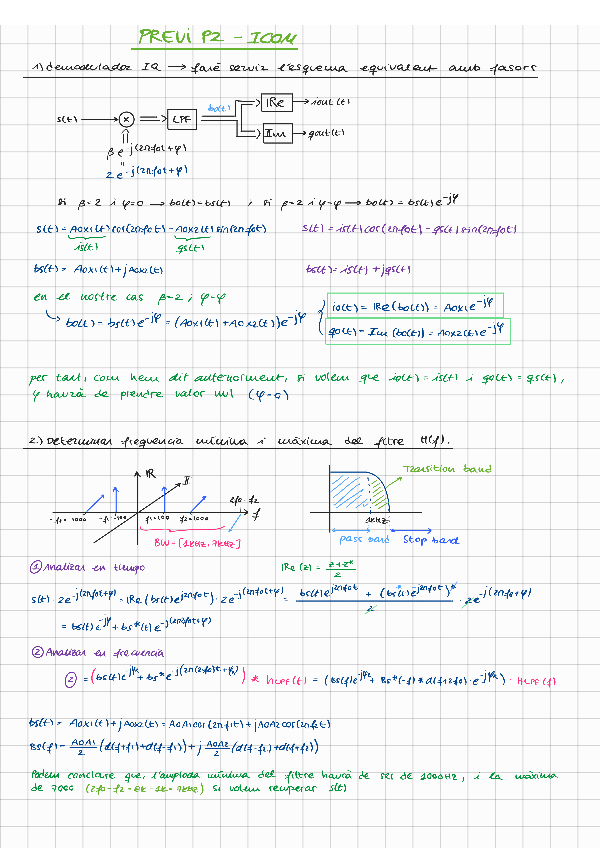 PREVI P2 - ICOM
1) demodulador IQ → faré servir l'esquema equivalent amb fasors
s(t) → x ⇒ LPF bo(t) IRe → iout(t)
IIm → qout(t)
β e^-j(2πf0t+φ)
"
2 e^-j(2πf0t+φ)
si β=2 i φ=0 → bo(t)=bs(t) , si β=2 i φ=φ → bo(t) = bs(t)e^-jφ
s(t) = A0x1(t)cos(2πf0t) - A0x2(t)sin(2πf0t)
is(t) qs(t)
s(t) = is(t)cos(2πf0t) - qs(t)sin(2πf0t)
bs(t) = A0x1(t)+jA0x2(t)
bs(t) = is(t)+jqs(t)
en el nostre cas β=2 i φ=φ
↳ bo(t) = bs(t)e^-jφ = (A0x1(t)+A0x2(t))e^-jφ
io(t) = IRe(bo(t)) = A0x1e^-jφ
qo(t) = Im(bo(t)) = A0x2(t)e^-jφ
per tant, com hem dit anteriorment, si volem que io(t)=is(t) i qo(t)=qs(t),
φ haurà de prendre valor nul (φ=0)
2.) Determinar frequencia mínima i màxima del filtre H(f).
IR II
-f2=-1000 -f1=-100 f1=100 f2=1000 2f0-f2 f
BW=[1kHz, 7kHz]
Transition band
1kHz
pass band Stop band
① Analizar en tiempo
IRe(z) = z+z*/2
s(t)·2e^-j(2πf0t+φ) = IRe(bs(t)e^j2πf0t)·2e^-j(2πf0t+φ) = bs(t)e^j2πf0t + (bs(t)e^j2πf0t)*/2 · 2e^-j(2πf0t+φ)
= bs(t)e^-jφ + bs*(t)e^-j(2π2f0t+φ)
② Analizar en frecuencia
bs(t) = A0x1(t)+jA0x2(t) = A0A1cos(2πf1t)+jA0A2cos(2πf2t)
Bs(f) = A0A1/2 (d(f+f1)+d(f-f1)) + j A0A2/2 (d(f-f2)+d(f+f2))
Podem concloure que, l'amplada mínima del filtre haurà de ser de 1000HZ, i la màxima
de 7000 (2f0-f2=8k-1k=7kHz) si volem recuperar s(t)